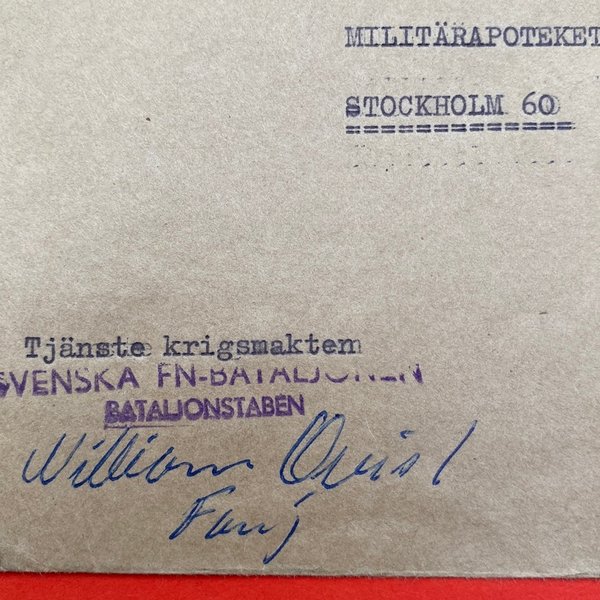 MILITÄRAPOTEKET
STOCKHOLM 60
Tjänste krigsmakten
SVENSKA FN-BATALJONEN
BATALJONSTABEN
William Qvist
Fanj